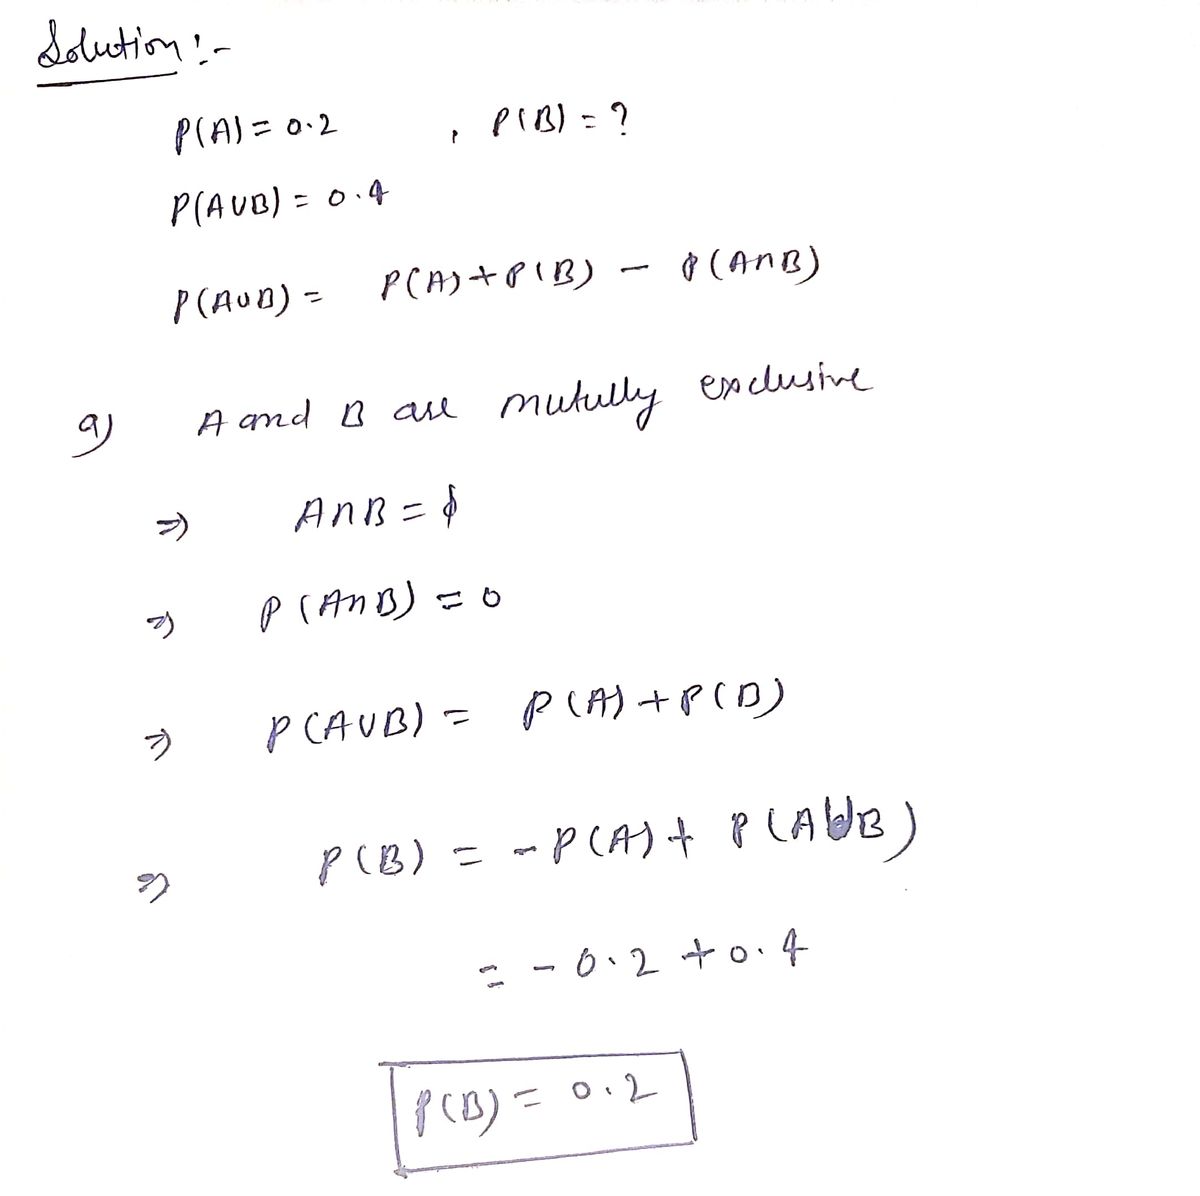 Solution :-
P(A) = 0.2 , P(B) = ?
P(A∪B) = 0.4
P(A∪B) = P(A) + P(B) - P(A∩B)
a) A and B are mutully exclusive
⇒ A∩B = ϕ
⇒ P(A∩B) = 0
⇒ P(A∪B) = P(A) + P(B)
⇒ P(B) = -P(A) + P(A∪B)
= -0.2 + 0.4
P(B) = 0.2